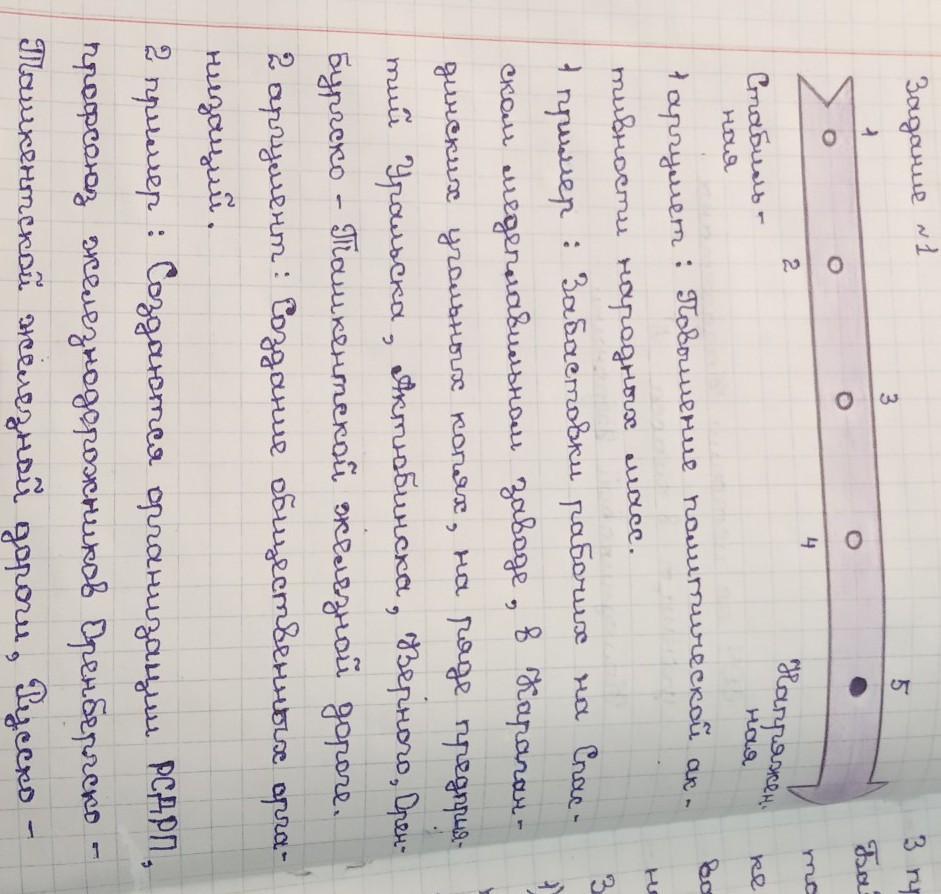 Задание №1
1
2
3
4
5
Стабиль-
ная
Напряжен.
ная
1 аргумет: Повышение политической ак-
тивности народных масс.
1 пример: Забастовки рабочих на Спас-
ском медеплавильном заводе, в Караган-
динских угольных копях, на ряде предприя-
тий Уральска, Актюбинска, Верного, Орен-
бургско - Ташкентской железной дороге.
2 аргумент: Создание общественных орга-
низаций.
2 пример: Создаются организации РСДРП,
профсоюз железнодорожников Оренбергско -
Ташкентской железной дороги, Русско -
3 пр